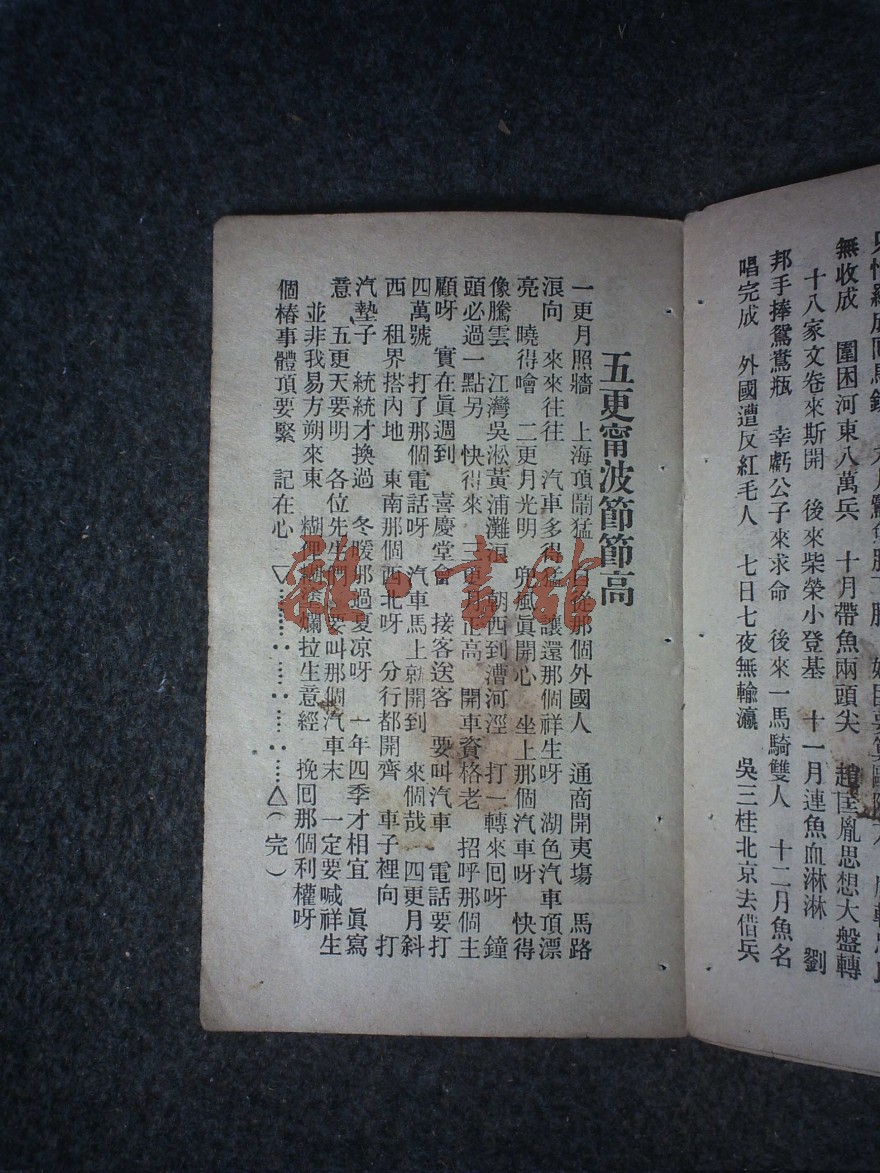 無收成 圍困河東八萬兵 十月帶魚兩頭尖 趙匡胤思想大盤轉
十八家文卷來斯開 後來柴榮小登基 十一月連魚血淋淋 劉
邦手捧鴛鴦瓶 幸虧公子來求命 後來一馬騎雙人 十二月魚名
唱完成 外國遭反紅毛人 七日七夜無輸瀛 吳三桂北京去借兵
五更甯波節節高
一更月照牆 上海頂鬧猛 自從那個外國人 通商開夷塲 馬路
浪向 來來往往 汽車多得猛 讓還那個祥生呀 湖色汽車頂漂
亮 曉得噲 二更月光明 兜風眞開心 坐上那個汽車呀 快得
像騰雲 江灣吳淞黃浦灘 朝西到漕河涇 打一轉來囘呀 鐘
頭必過一點另 快得來 三更月正高 開車資格老 招呼那個主
顧呀 實在眞週到 喜慶堂會 接客送客 要叫汽車 電話要打
四萬號 打了那個電話呀 汽車馬上就開到 來個哉 四更月斜
西 租界搭內地 東南那個西北呀 分行都開齊 車子裡向 打
汽墊子 統統才換過 冬暖那過夏凉呀 一年四季才相宜 眞寫
意 五更天要明 各位先生們 要叫那個汽車末 一定要喊祥生
並非我易方朔來東 糊俚糊塗爛拉生意經 挽回那個利權呀
個椿事體頂要緊 記在心 (完)
雜·書館